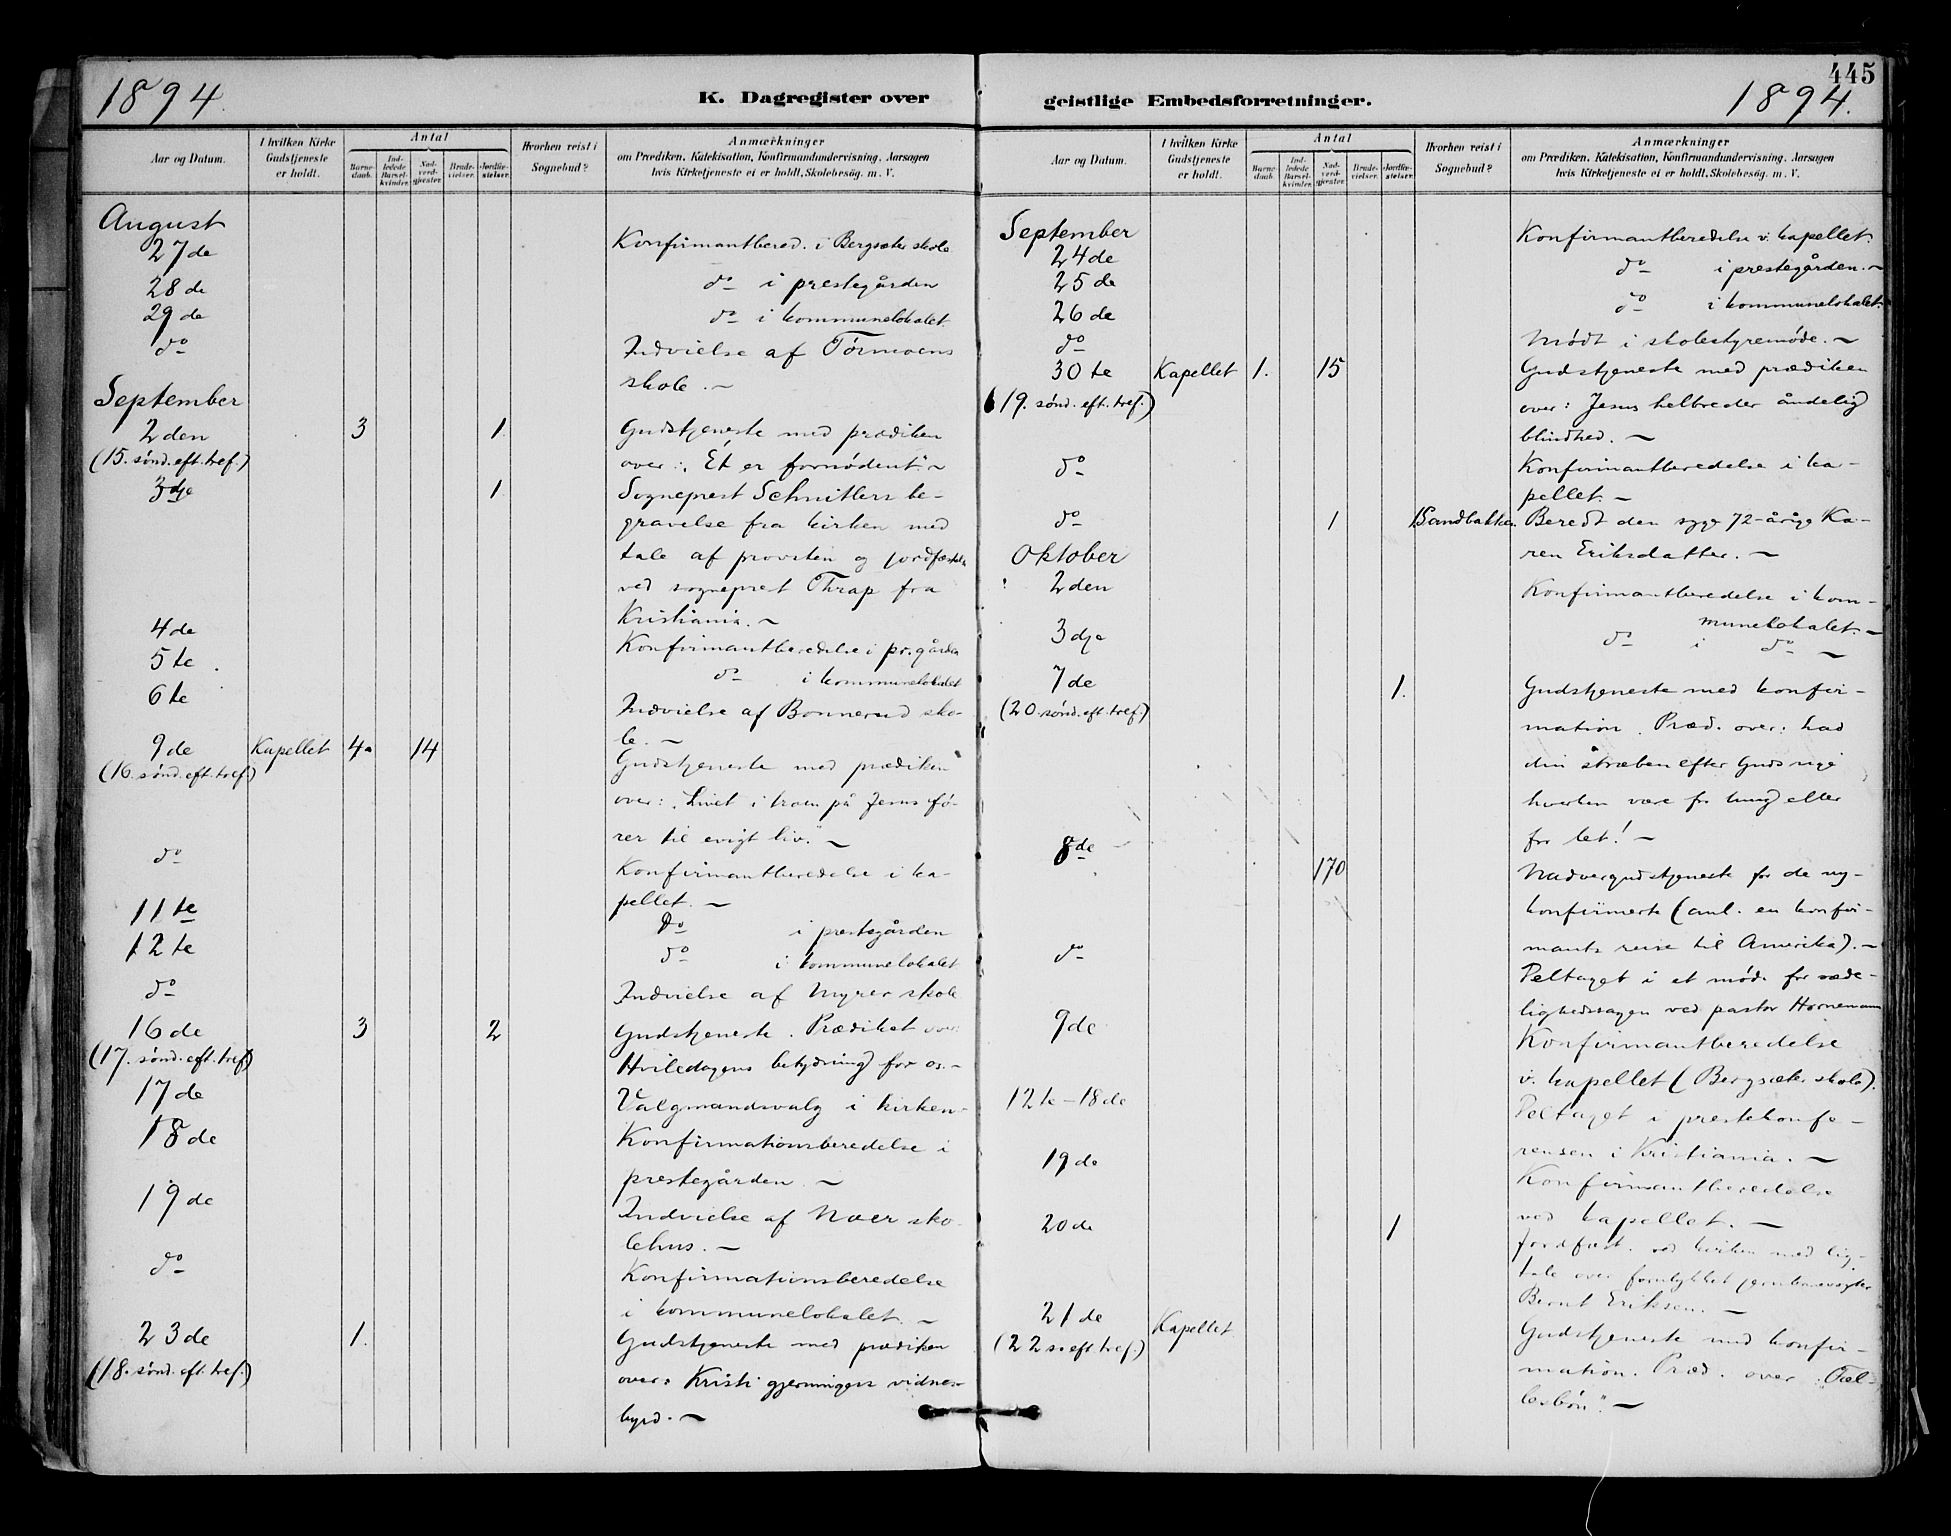 1894.
K. Dagregister over
Aar og Datum.
I hvilken Kirke Gudstjeneste er holdt.
Antal
Barnedaab.
Indledede Barselkvinder.
Nadverdgjester.
Brudevielser.
Jordfæstelser.
Hvorhen reist i Sognebud?
Anmærkninger
om Prædiken, Katekisation, Konfirmandundervisning, Aarsagen
hvis Kirketjeneste ei er holdt, Skolebesøg. m. V.
August
27de Konfirmantbered. i Bergsæter skole
28de do i prestegården
29de do i kommunelokalet
do Indvielse af Tørmoens
skole. ~
September
2den 3 1 Gudstjeneste med prædiken
(15. sønd. eft. tref.) over: "Ét er fornødent." ~
3dje 1 Sogneprest Schnitlers be-
gravelse fra kirken med
tale af provsten og jordfæstelse
ved sogneprest Thrap fra
Kristiania. ~
4de Konfirmantberedelse i pr.gården
5te do i kommunelokalet
6te Indvielse af Bonnerud sko-
le. ~
9de Kapellet 4 14 Gudstjeneste med prædiken
(16. sønd. eft. tref.) over: "Livet i troen på Jesus fø-
rer til evigt liv." ~
do Konfirmantberedelse i ka-
pellet. ~
11te Do i prestegården
12te do i kommunelokalet
do Indvielse af Myrer skole
16de 3 2 Gudstjeneste. Prædiket over:
(17. sønd. eft. tref.) Hviledagens betydning for os. -
17de Valgmandsvalg i kirken. -
18de Konfirmationsberedelse i
prestegården. ~
19de Indvielse af Noer sko-
lehus. ~
do Konfirmationsberedelse
i kommunelokalet. ~
23de 1. Gudstjeneste med prædiken
(18. sønd. eft. tref.) over: Kristi gjerningers vidnes-
byrd. ~
445
geistlige Embedsforretninger.
1894.
Aar og Datum.
I hvilken Kirke Gudstjeneste er holdt.
Antal
Barnedaab.
Indledede Barselkvinder.
Nadverdgjester.
Brudevielser.
Jordfæstelser.
Hvorhen reist i Sognebud?
Anmærkninger
om Prædiken, Katekisation, Konfirmandundervisning, Aarsagen
hvis Kirketjeneste ei er holdt, Skolebesøg. m. V.
September
24de Konfirmantberedelse v. kapellet.
25de do i prestegården. ~
26de do i kommunelokalet.
do Mødt i skolestyremøde. ~
30te Kapellet 1. 15 Gudstjeneste med prædiken
(19. sønd. eft. tref.) over: Jesus helbreder åndelig
blindhed. ~
do Konfirmantberedelse i ka-
pellet. ~
do 1 Sandbakken Beredt den syge 72-årige Ka-
ren Eriksdatter. ~
Oktober
2den Konfirmantberedelse i kom-
munelokalet. ~
3dje do i do ~
7de 1. Gudstjeneste med konfir-
(20. sønd. eft. tref.) mation. Præd. over: Lad
din stræben efter Guds rige
hverken være for tung eller
for let! ~
8de 170 Nadvergudstjeneste for de ny-
konfirmerte (anl. en konfir-
mants reise til Amerika). ~
do Deltaget i et møde for sæde-
lighedssagen ved pastor Hornemann
9de Konfirmantberedelse
v. kapellet (Bergsæter skole).
12te - 18de Deltaget i prestekonfe-
rensen i Kristiania. ~
19de Konfirmantberedelse
ved kapellet. ~
20de 1 Jordfæst. ved kirken med lig-
tale over forulykket jernbanevogter
Bernt Eriksen. ~
21de Kapellet Gudstjeneste med konfir-
(22 s. eft. tref.) mation. Præd. over: "Fæl-
lesbøn". ~